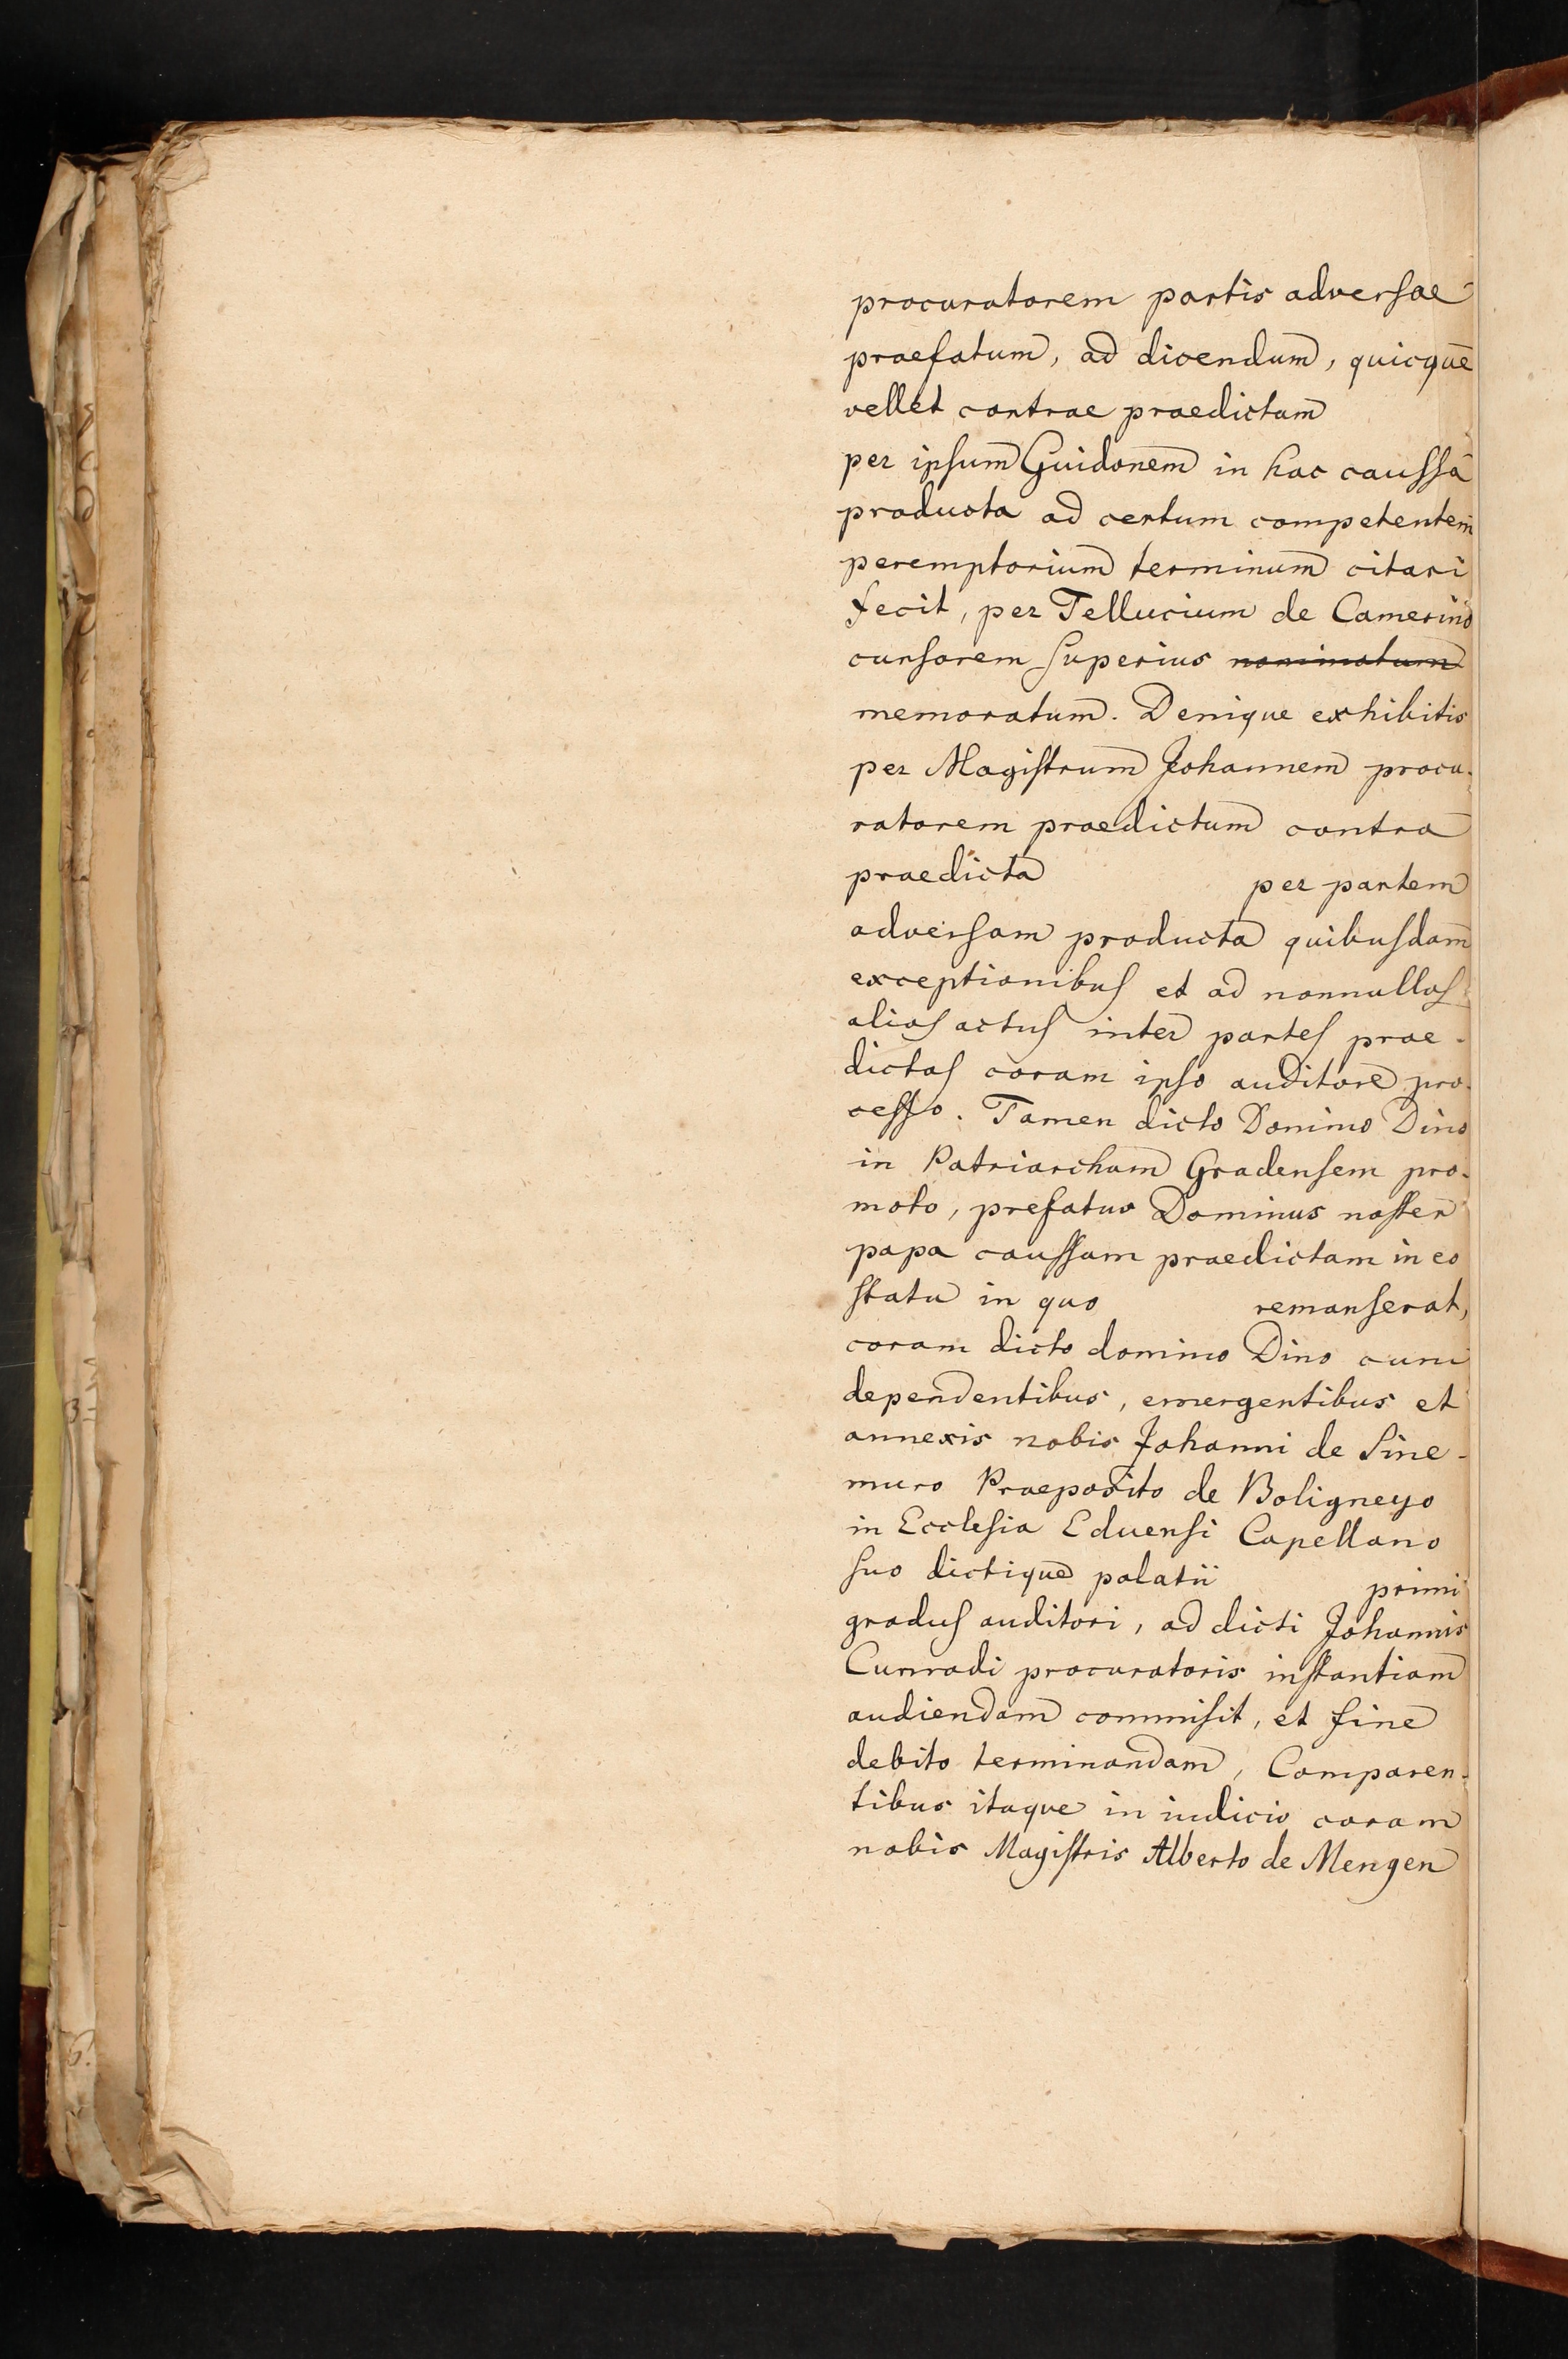 procuratorem partis adversae
praefatum, ad dicendum, quicque
vellet contrae praedictam
per ipsum Guidonem in hac caussa
producta ad certum competentem
peremptorium terminum citari
fecit, per Tellucium de Camerino
cursorem superius nominatum
memoratum. Denique exhibitis
per Magistrum Johannem procu-
ratorem praedictum contra
praedicta per partem
adversam producta quibusdam
exceptionibus et ad nonnullos
alios actus inter partes prae-
dictas coram ipso auditore pro-
cesso. Tamen dicto Domino Dino
in Patriarcham Gradensem pro-
moto, prefatus Dominus noster
papa caussam praedictam in eo
statu in quo remanserat,
coram dicto domino Dino cum
dependentibus, emergentibus et
annexis nobis Johanni de Sine-
muro Praeposito de Boligneyo
in Ecclesia Eduensi Capellano
suo dictique palatii primi
gradus auditori, ad dicti Johannis
Cunradi procuratoris instantiam
audiendam commisit, et fine
debito terminandam, Comparen-
tibus itaque in iudicio coram
nobis Magistris Alberto de Mengen